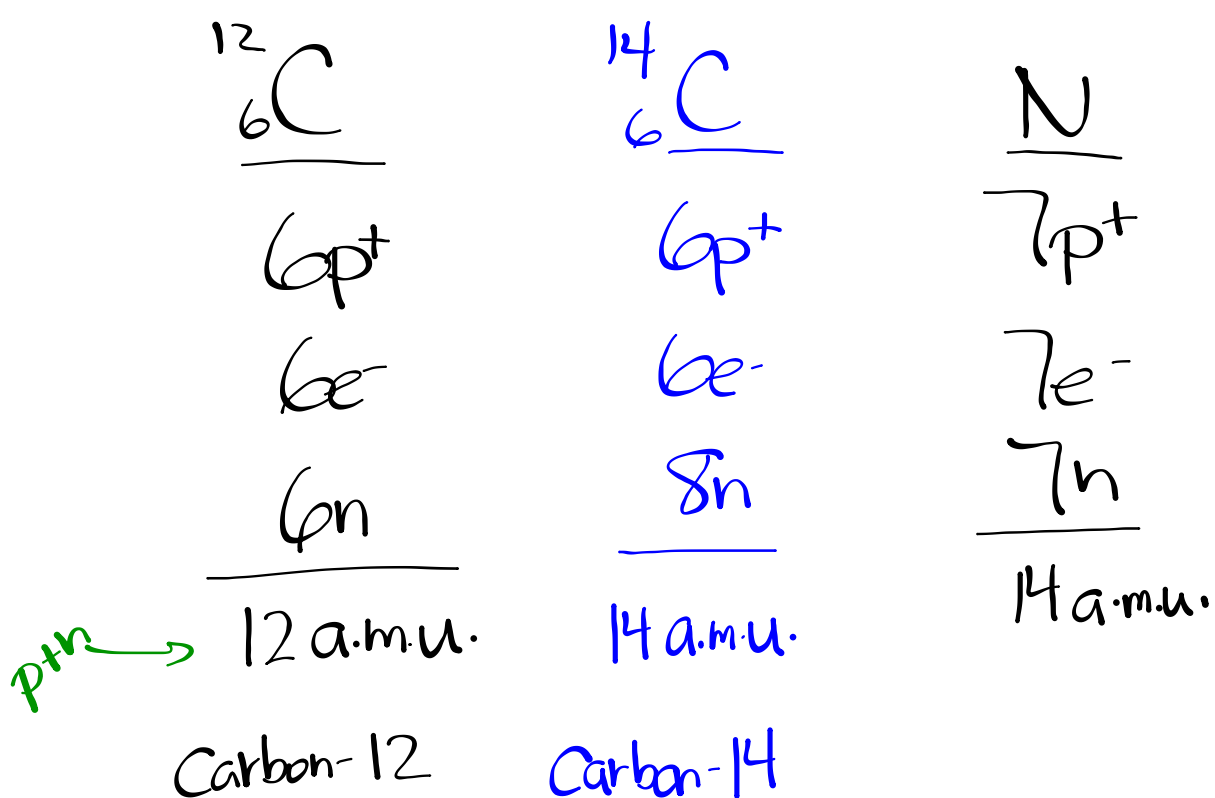 ¹²₆C
6p⁺
6e⁻
6n
p+n → 12 a.m.u.
Carbon-12
¹⁴₆C
6p⁺
6e⁻
8n
14 a.m.u.
Carbon-14
N
7p⁺
7e⁻
7n
14 a.m.u.